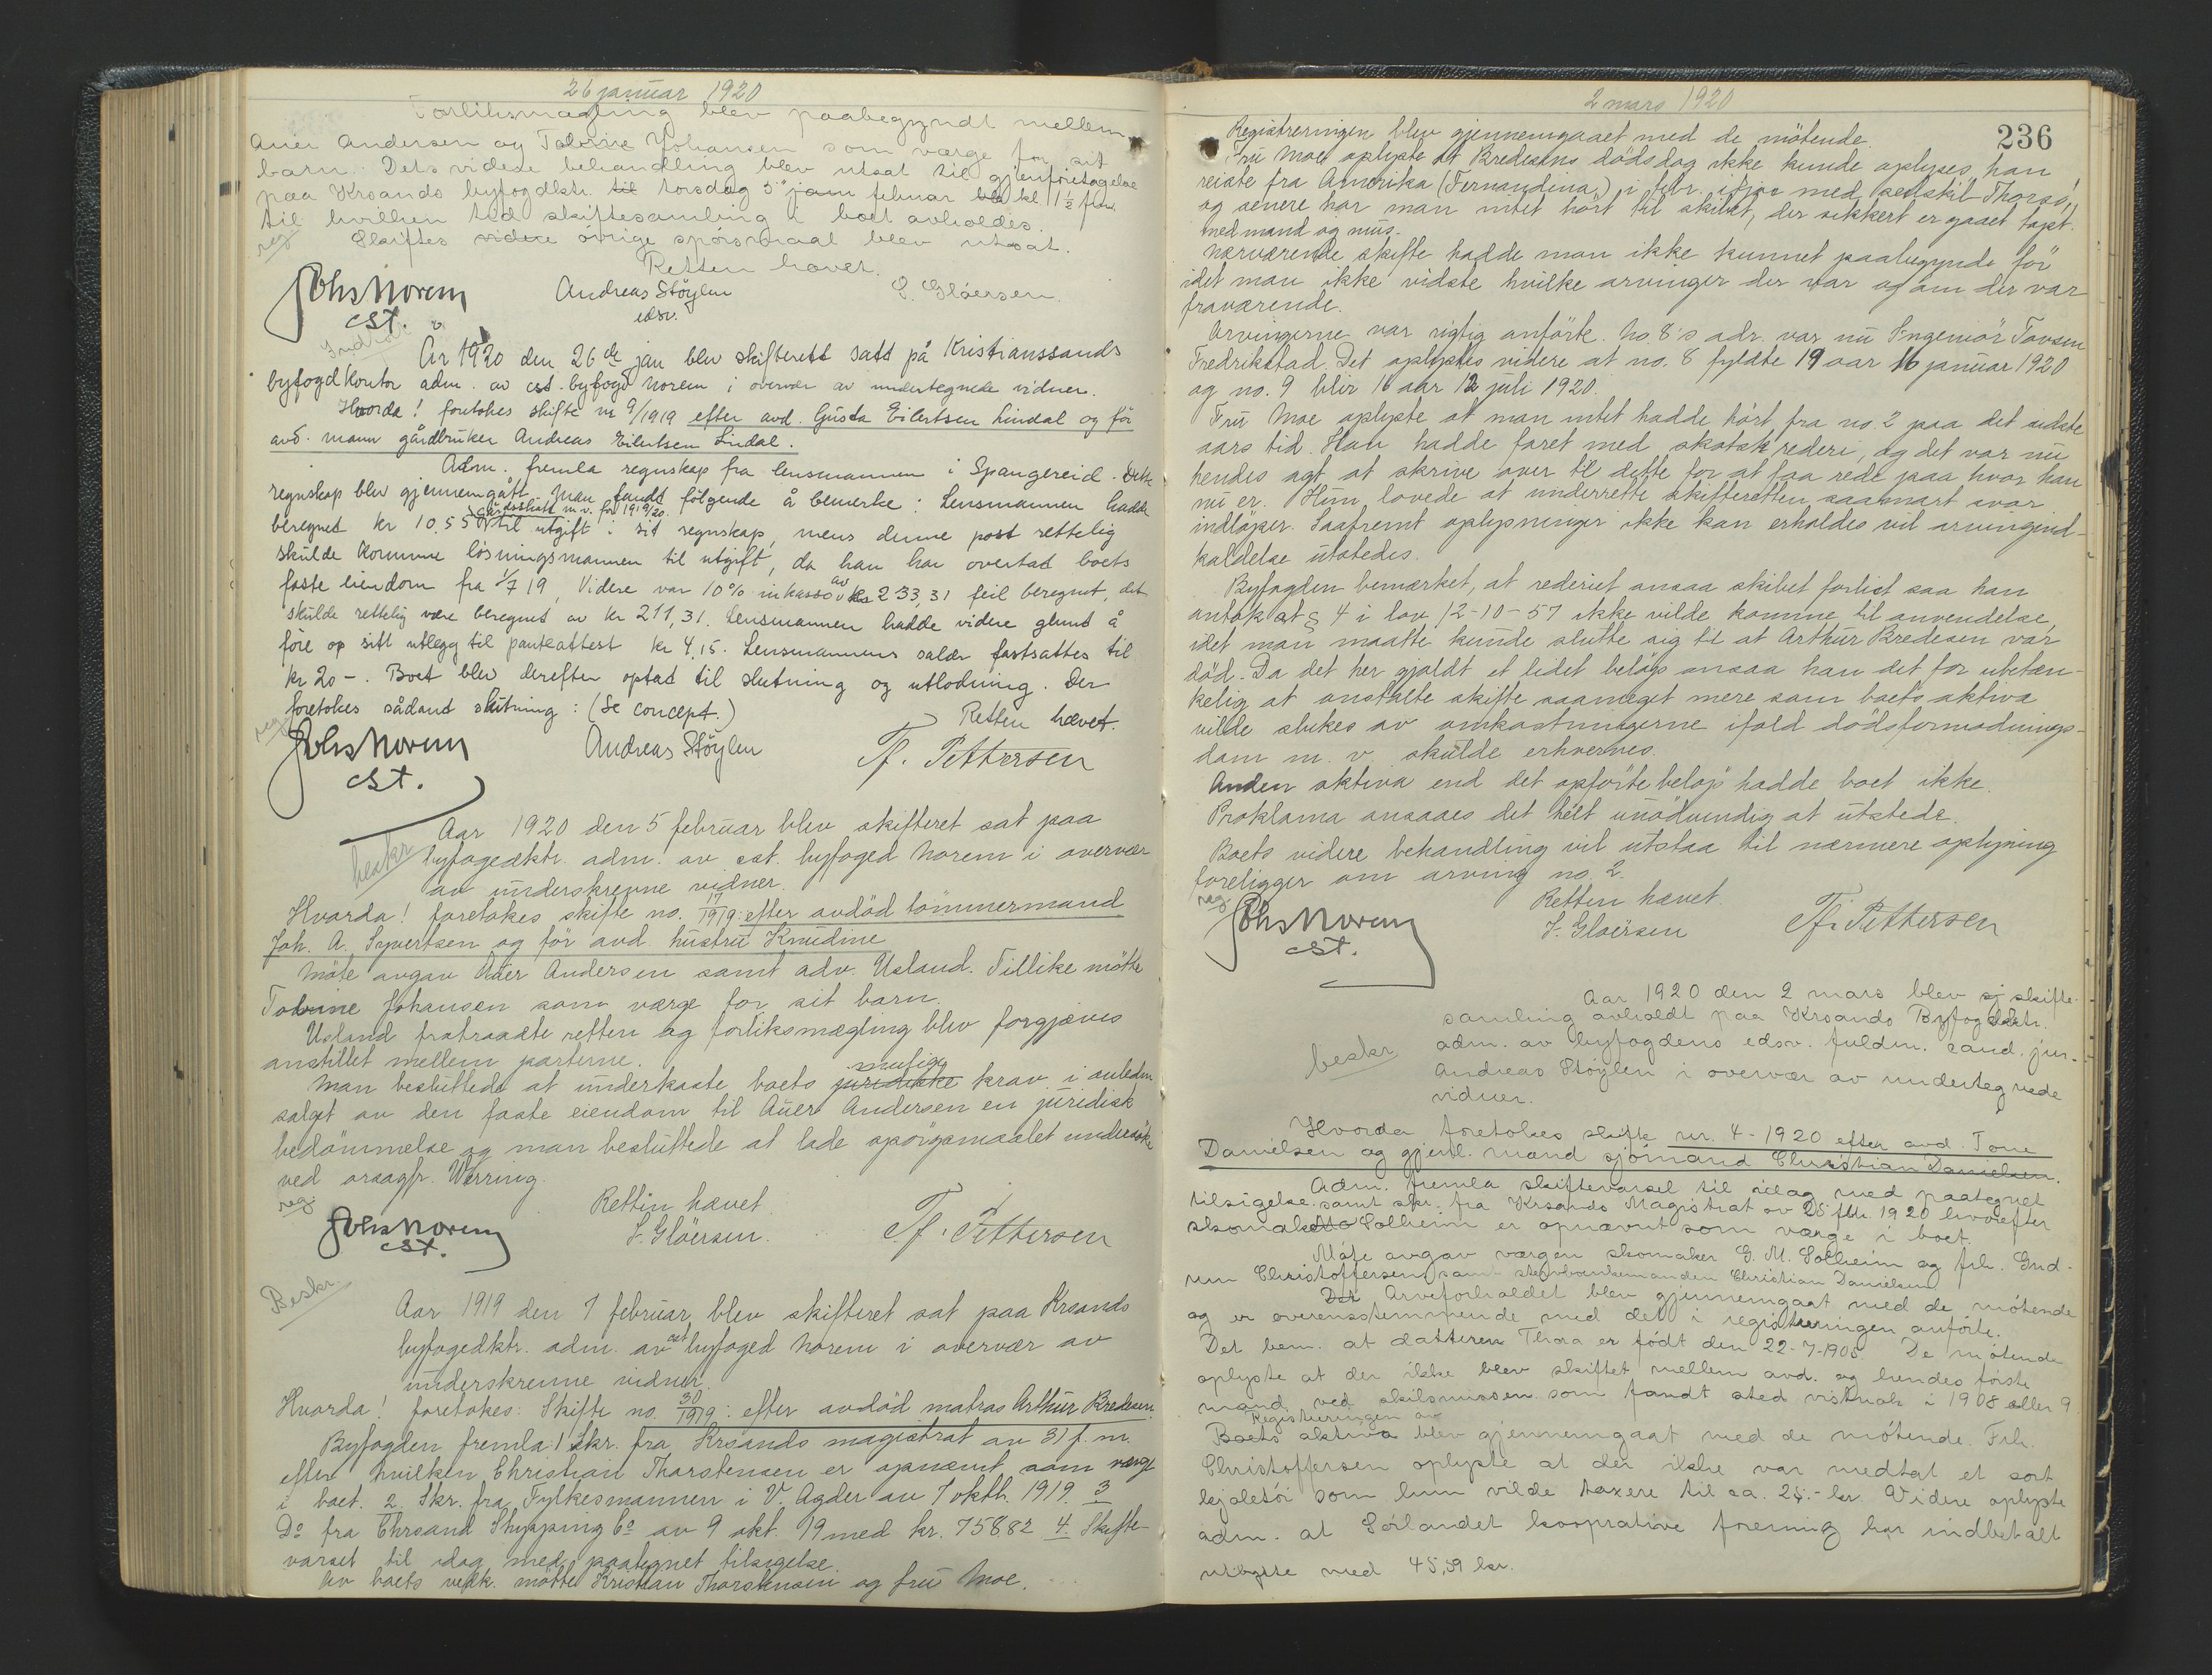 26 januar 1920
Forliksmægling blev paabegyndt mellem
Auer Andersen og Tobine Johansen som værge for sit
barn. Dets videre behandling blev utsat til gjenforetagelse
paa Krsands byfogdktr. til torsdag 5 jan februar kl. 1½ fm.
til hvilken tid skiftesamling i boet avholdes.
reg
Skiftes videre övrige spörsmaal blev utsat.
Retten hævet.
Johs Norem
cst.
Andreas Stöylen
edsv.
S. Glöersen.
År 1920 den 26de jan blev skifterett satt på Kristianssands
byfogdkontor adm. av cst. byfogd Norem i overvær av undertegnede vidner.
Hvorda! foretokes skifte nr 9/1919 efter avd. Gusta Eilertsen Lindal og för
avd. mann gårdbruker Andreas Eilertsen Lindal.
Adm. fremla regnskap fra lensmannen i Spangereid. Dette
regnskap blev gjennemgått. Man fandt følgende å bemerke: Lensmannen hadde
beregnet kr 10.55 årsskatt m.v. for 1919/20. til utgift i sit regnskap, mens denne post rettelig
skulde komme lösningsmannen til utgift, da han har overtat boets
faste eiendom fra 1/7 19, Videre var 10% inkasso av kr 233,31 feil beregnet, det
skulde rettelig være beregnet av kr 211,31. Lensmannen hadde videre glemt å
före op sitt utlegg til panteattest kr 4,15. Lensmannens salær fastsattes til
kr 20-. Boet blev derefter optat til slutning og utlodning. Der
foretokes sådant slutning: (Se concept.)
reg
Retten hævet.
Johs Norem
cst.
Andreas Stöylen
Th. Pettersen
beskr
Aar 1920 den 5 februar blev skifteret sat paa
byfogedktr. adm. av cst. byfoged Norem i overvær
av underskrevne vidner.
Hvorda! foretokes skifte no. 17/1919: efter avdöd tömmermand
Joh. A. Syvertsen og för avd. hustru Knudine
Möte avgav Auer Andersen samt adv. Usland. Tillike mötte
Tobine Johansen som værge for sit barn.
Usland fratraadte retten og forliksmægling blev forgjæves
anstillet mellem parterne.
Man besluttede at underkaste boets juridiske mulige krav i anledn.
salget av den faste eiendom til Auer Andersen en juridisk
bedömmelse og man besluttede at lade spörgsmaalet undersöke
ved orsagfr. Wærring.
reg
Retten hævet
Johs Norem
cst.
S. Glöersen.
Th. Pettersen
Beskr.
Aar 1919 den 7 februar blev skifteret sat paa Krsands
byfogedktr. adm. av cst byfoged Norem i overvær av
underskrevne vidner.
Hvorda! foretokes: Skifte no. 30/1919: efter avdöd matros Arthur Bredesen.
Byfogden fremla: 1 Skr. fra Krsands magistrat av 31 f. m.
efter hvilken Christian Thorstensen er opnævnt som værge
i boet. 2. Skr. fra Fylkesmannen i V. Agder av 7 oktb. 1919. 3
Do fra Chrsand Shipping Co av 9 okt. 19 med kr. 758.82 4. Skifte-
varsel til idag med paategnet tilsigelse.
Av boets vedk. mötte Kristian Thorstensen og fru Moe.
2 mars 1920
236
Registreringen blev gjennemgaaet med de mötende.
Fru Moe oplyste at Bredesens dödsdag ikke kunde oplyses, han
reiste fra Amerika (Fernandina) i febr. med seilskib "Thorsö"
og senere har man intet hört til skibet, der sikkert er gaaet tapt
med mand og mus.
Nærværende skifte hadde man ikke kunnet paabegynde för
idet man ikke vidste hvilke arvinger der var og om der var
fraværende.
Arvingerne var rigtig anförte. No. 8's adr. var nu Ingeniör Tovsen
Fredrikstad. Det oplystes videre at no. 8 fyldte 19 aar 16 januar 1920
og no. 9 blir 16 aar 12 juli 1920.
Fru Moe oplyste at man intet hadde hört fra no. 2 paa det sidste
aars tid. Han hadde faret med skotsk rederi, og det var nu
hendes agt at skrive over til dette for at faa rede paa hvor han
nu er. Hun lovede at underrette skifteretten saasnart svar
indlöper. Saafremt oplysninger ikke kan erholdes vil arvingind-
kaldelse utstedes.
Byfogden bemærket, at rederiet ansaa skibet forlist saa han
antok at § 4 i lov 12-10-57 ikke vilde komme til anvendelse,
idet man maatte kunde slutte sig til at Arthur Bredesen var
död. Da det her gjaldt et lidet belöp ansaa han det for ubetæn-
kelig at anstalte skifte saameget mere som boets aktiva
vilde slukes av omkostningerne ifald dödsformodnings-
dom m. v. skulde erhverves.
Anden aktiva end det opförte belöp hadde boet ikke.
Proklama ansaaes det helt unödvendig at utstede.
Boets videre behandling vil utstaa til nærmere oplysning
foreligger om arving no. 2.
reg
Retten hævet.
Johs Norem
cst.
S. Glöersen
Th. Pettersen
beskr
Aar 1920 den 2 mars blev sj skifte-
samling avholdt paa Krsands Byfogdktr.
adm. av byfogdens edsv. fuldm. cand. jur.
Andreas Stöylen i overvær av undertegnede
vidner.
Hvorda foretokes skifte nr. 4-1920 efter avd. Tone
Danielsen og gjenl. mand sjömand Christian Danielsen.
Adm. fremla skiftevarsel til idag med paategnet
tilsigelse samt skr. fra Krsands Magistrat av 25 feb. 1920 hvorefter
skomaker Solheim er opnævnt som værge i boet.
Möte avgav værgen skomaker G. M. Solheim og frk. Gud-
run Christoffersen samt stervbomanden Christian Danielsen
Det Arveforholdet blev gjennemgaat med de mötende
og er overensstemmende med det i registreringen anförte.
Det bem. at datteren Thora er födt den 22-7-1905. De mötende
oplyste at der ikke blev skiftet mellem avd. og hendes förste
mand ved skilsmissen som fandt sted vistnok i 1908 eller 9
Registreringen av
Boets aktiva blev gjennemgaat med de mötende. Frk.
Christoffersen oplyste at der ikke var medtat et sort
kjoletöi som hun vilde taxere til ca. 25.- kr. Videre oplyste
adm. at Sörlandet kooprative forening har indbetalt
utbytte med 45,59 kr.